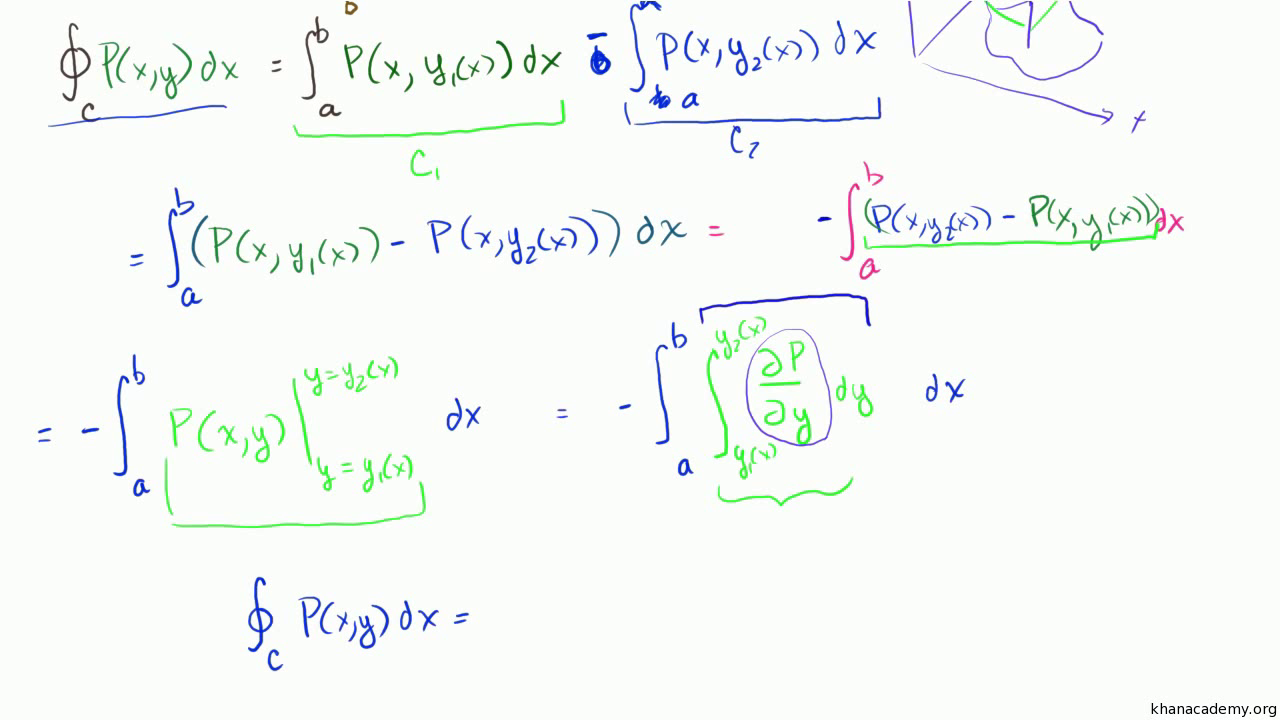 ∮_C P(x,y) dx = ∫_a^b P(x, y₁(x)) dx − ∫_a P(x, y₂(x)) dx
C₁ C₂ x
= ∫_a^b (P(x, y₁(x)) − P(x, y₂(x))) dx = − ∫_a^b (P(x, y₂(x)) − P(x, y₁(x))) dx
= − ∫_a^b P(x,y) |_{y = y₁(x)}^{y = y₂(x)} dx = − ∫_a^b ∫_{y₁(x)}^{y₂(x)} ∂P/∂y dy dx
∮_C P(x,y) dx =
khanacademy.org